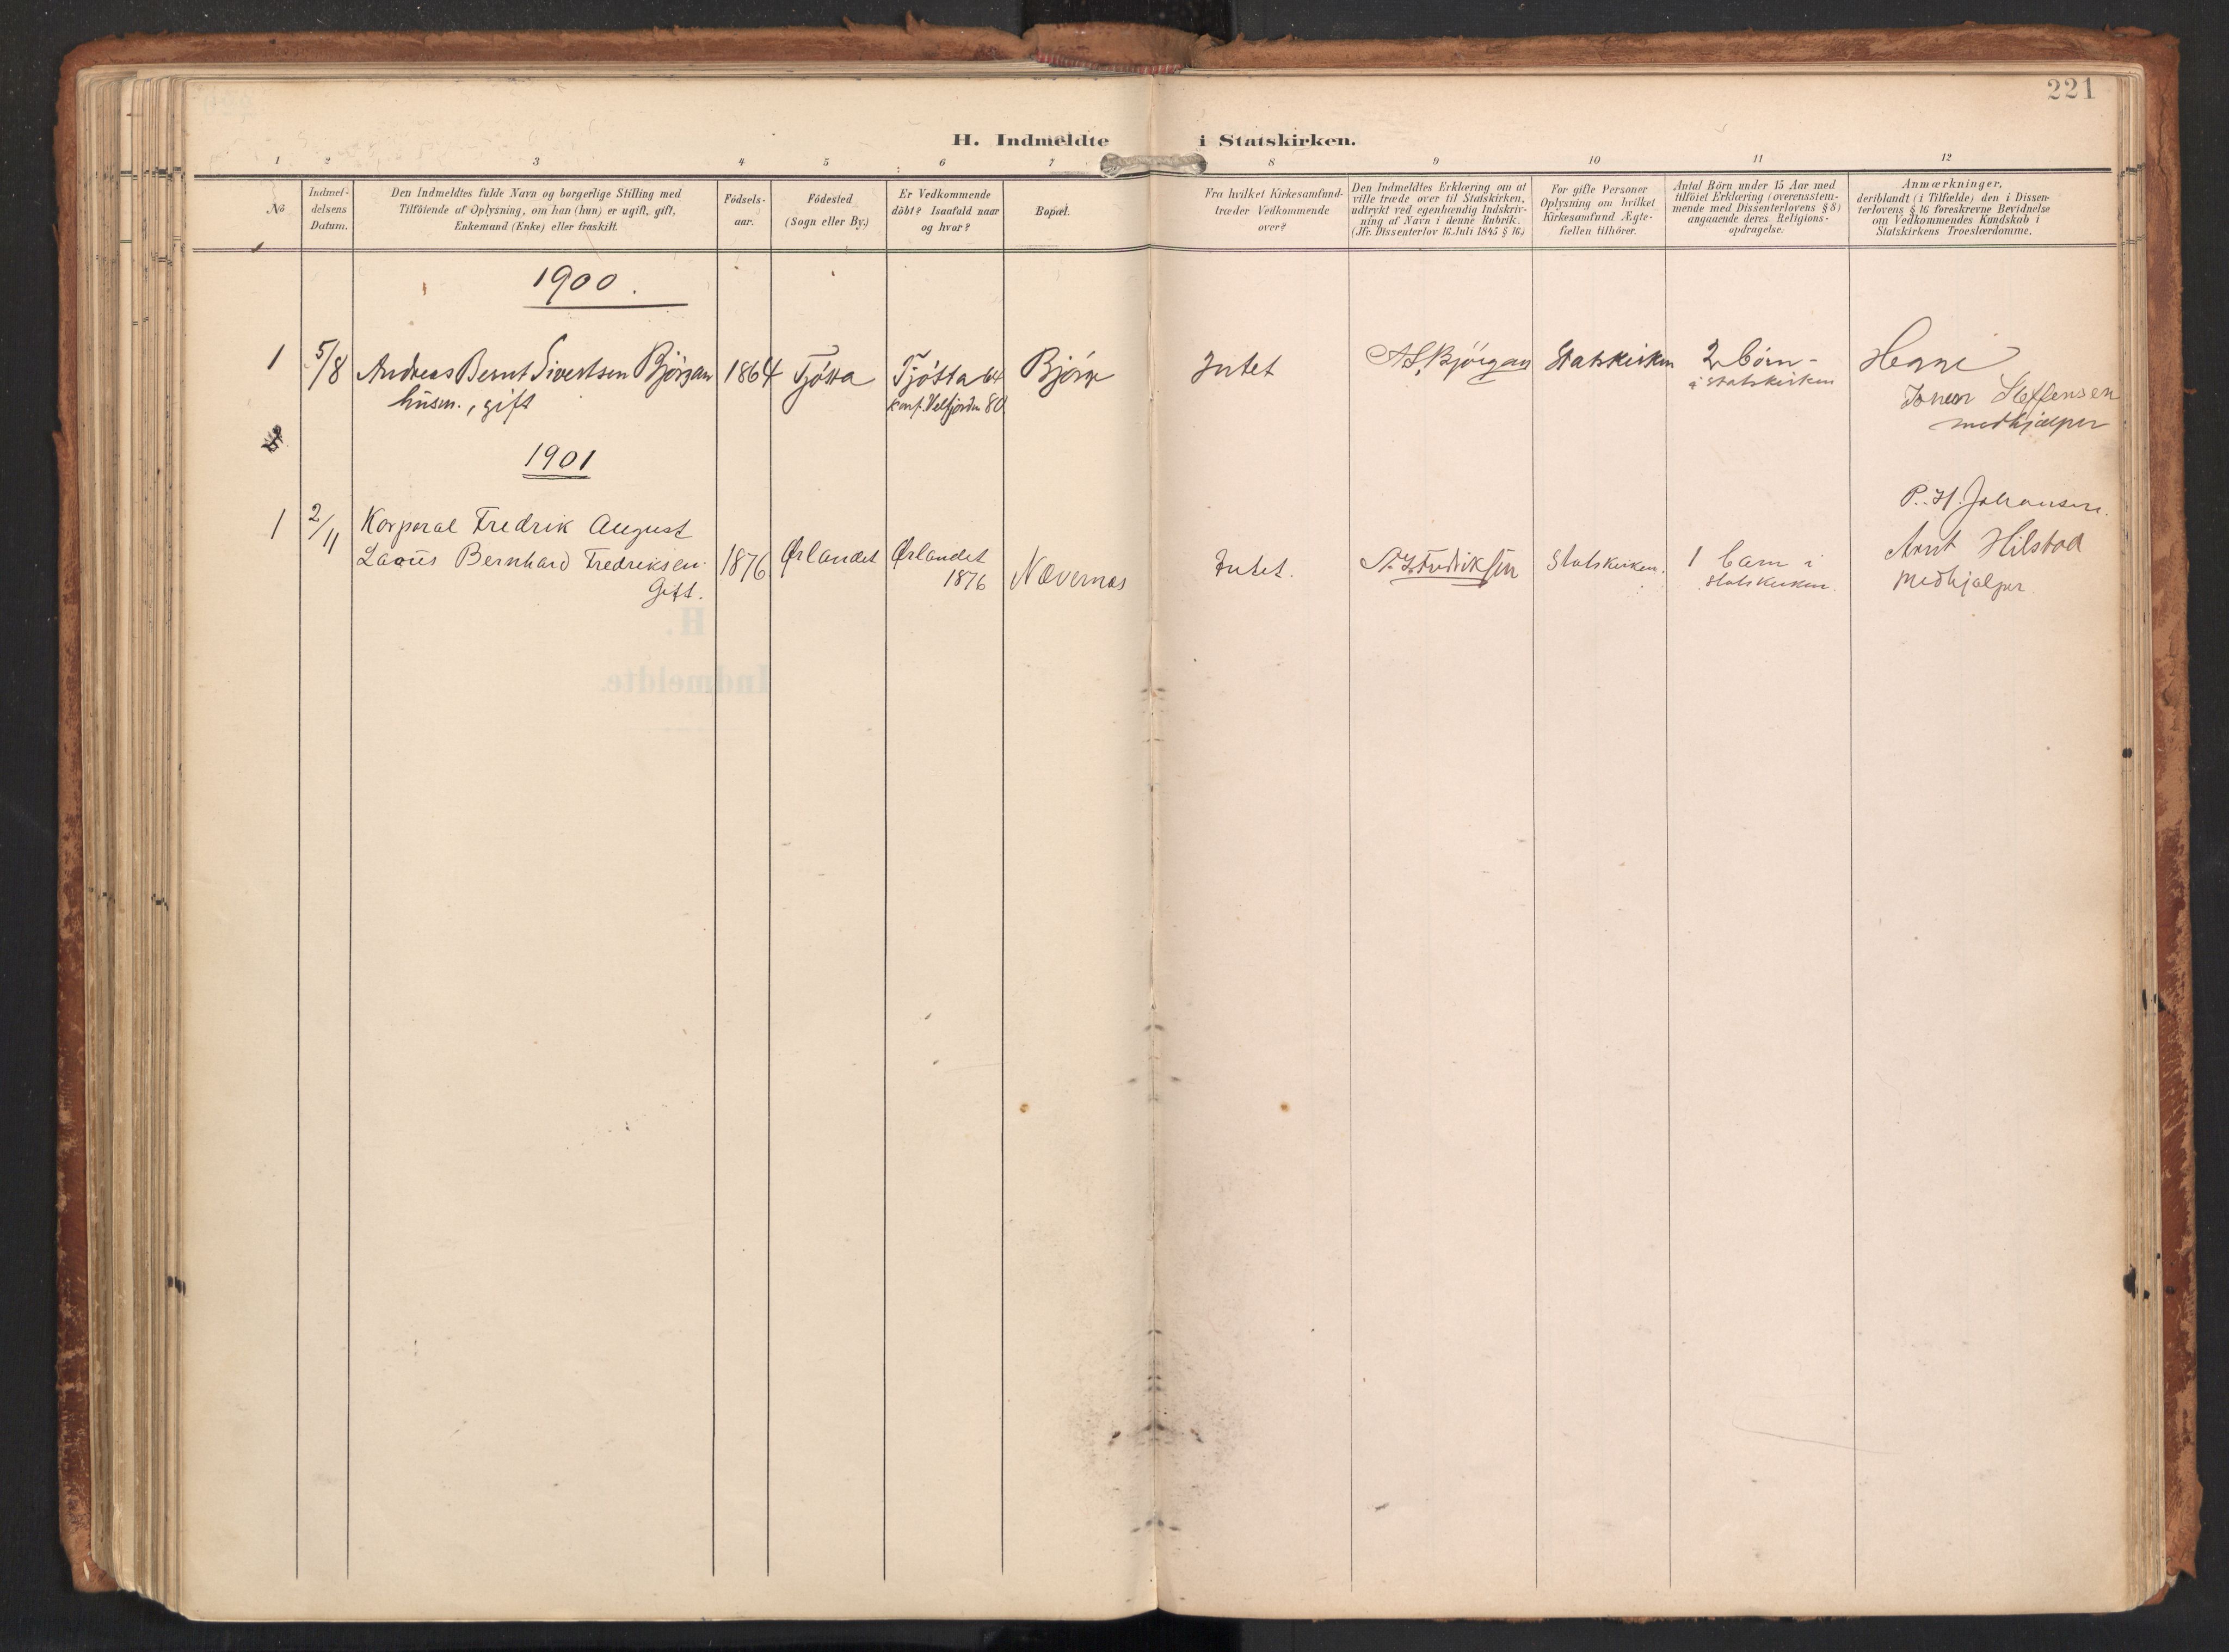 221
H. Indmeldte i Statskirken.
1 2 3 4 5 6 7 8 9 10 11 12
No
Indmel-
delsens
Datum.
Den Indmeldtes fulde Navn og borgerlige Stilling med
Tilföiende af Oplysning, om han (hun) er ugift, gift,
Enkemand (Enke) eller fraskilt.
Födsels-
aar.
Födested
(Sogn eller By.)
Er Vedkommende
döbt? Isaafald naar
og hvor?
Bopæl.
Fra hvilket Kirkesamfund
træder Vedkommende
over?
Den Indmeldtes Erklæring om at
ville træde over til Statskirken,
udtrykt ved egenhændig Indskriv-
ning af Navn i denne Rubrik.
(Jfr. Dissenterlov 16 Juli 1845 § 16.)
For gifte Personer
Oplysning om hvilket
Kirkesamfund Ægte-
fællen tilhörer.
Antal Börn under 15 Aar med
tilföiet Erklæring (overensstem-
mende med Dissenterlovens § 8)
angaaende deres Religions-
opdragelse.
Anmærkninger,
deriblandt (i Tilfælde) den i Dissen-
terlovens § 16 foreskrevne Bevidnelse
om Vedkommendes Kundskab i
Statskirkens Troeslærdomme.
1900.
1 5/8 Andreas Bernt Sivertsen Björgan 1864 Tjötta Tjötta 64 Intet A S Björgan Statskirken 2 börn -
husm., gift konf. Velfjorden 80 i statskirken
Steffensen
medhjælper
1901
P. H. Johansen.
1 2/11 Korporal Fredrik August
Bernhard Fredriksen 1876 Ørlandet Ørlandet
1876 Nævernes Intet. Statskirken. 1 barn i
statskirken.
Gift.
Arnt Hilstad
Medhjælper
H.
Indmeldte.